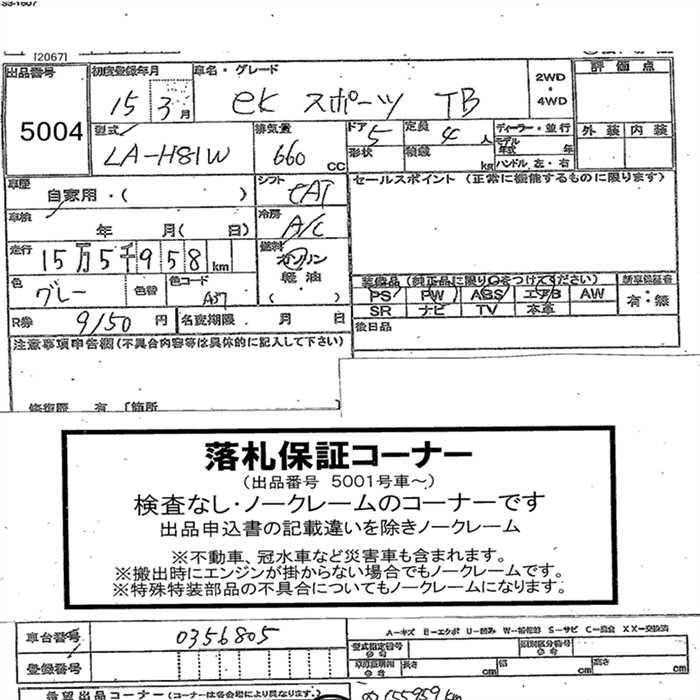 [2067]
出品番号 初度登録年月 車名・グレード 2WD・4WD 評価点
5004 15 3月 ek スポーツ TB
型式 排気量 ドア 5 定員 4人 ディーラー・並行 外装 内装
LA-H81W 660 CC 形状 積載 kg モデル年式 年
ハンドル 左・右
車歴 自家用・( ) シフト CAT セールスポイント (正常に機能するものに限ります)
車検 年 月( 日) 冷房 A/C
走行 15万5千958km 燃料 ガソリン 軽油 ( )
色 グレー 色替 色コード A37
装備品 (純正品に限り○をつけてください) 新車保証書
PS PW ABS エアB AW 有・無
SR ナビ TV 本革
R券 9150円 名変期限 月 日 後日品
注意事項申告欄(不具合内容等は具体的に記入して下さい)
修復歴 有 [箇所
落札保証コーナー
(出品番号 5001号車~)
検査なし・ノークレームのコーナーです
出品申込書の記載違いを除きノークレーム
※不動車、冠水車など災害車も含まれます。
※搬出時にエンジンが掛からない場合でもノークレームです。
※特殊特装部品の不具合についてもノークレームになります。
車台番号 0356805
A-キズ E-エクボ U-凹み W-補修跡 S-サビ C-腐食 XX-交換済
型式指定番号 類別区分番号
登録番号 長さ cm 幅 cm 高さ cm
希望出品コーナー (コーナーは各会場により異なります。)
155959km